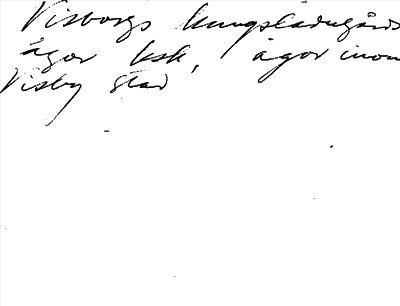 Visborgs kungsladugårds
ägor lsk, ägor inom
Visby stad